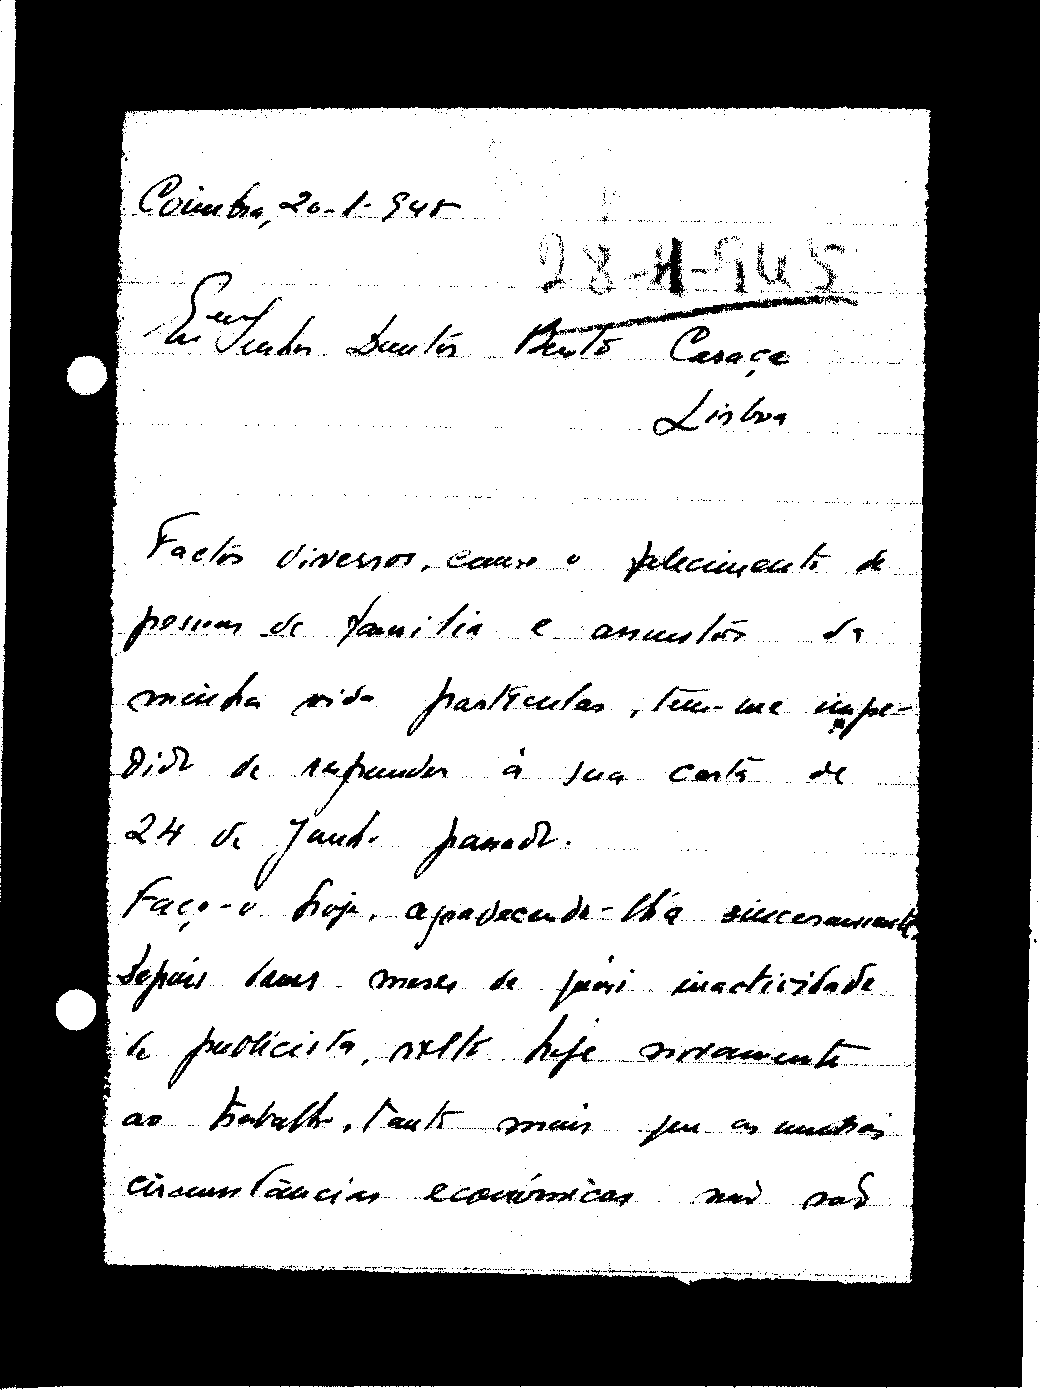 Coimbra, 20-8-945
28-II-945
Ex.mo Senhor Doutor Bento Caraça
Lisboa
Factos diversos, como o falecimento de
pessoas de família e assuntos da
minha vida particular, têm-me impe-
dido de responder à sua carta de
24 de passado.
Faço-o hoje, agradecendo-lha sinceramente.
Depois duns meses de quási inactividade
de publicista, volto hoje novamente
ao trabalho, tanto mais que as minhas
circunstâncias económicas não são